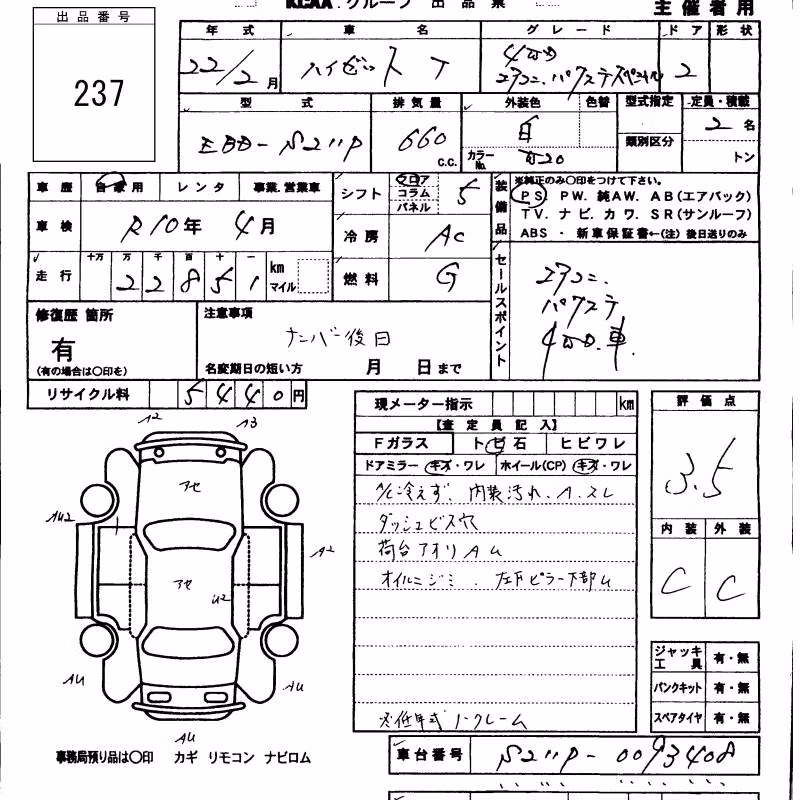 KCAA.グループ 出品票
主催者用
出品番号
237
年式 車名 グレード ドア 形状
22/2月 ハイゼット T 4WD エアコン.パワステスペシャル 2
型式 排気量 外装色 色替 型式指定 定員・積載
EBD-S211P 660 c.c. 白 2名
カラーNo. 類別区分 トン
車歴 自家用 レンタ 事業.営業車
シフト フロア コラム パネル 5
装備品 ※純正のみ〇印をつけて下さい。
PS. PW. 純AW. AB(エアバック)
TV. ナビ. カワ. SR(サンルーフ)
ABS ・ 新車保証書←(注) 後日送りのみ
車検 R10年 4月
冷房 AC
走行 十万 万 千 百 十 一
22851 km マイル
燃料 G
セールスポイント
エアコン
パワステ
4WD.車.
修復歴 箇所
有
(有の場合は〇印を)
注意事項
ナンバー後日
名変期日の短い方 月 日まで
リサイクル料 5440円
現メーター指示 km
【査定員記入】
Fガラス トビ石 ヒビワレ
ドアミラー キズ・ワレ ホイール(CP) キズ・ワレ
A/C冷えず、内装汚れ.A.スレ
ダッシュビス穴
荷台アオリAU
オイルニジミ. 左下ピラー下部U
※低年式ノークレーム
評価点
3.5
内装 外装
C C
A2 A3
アセ
AU2
A2
アセ
U2
AU AU
AU
ジャッキ工具 有・無
パンクキット 有・無
スペアタイヤ 有・無
事務局預り品は〇印 カギ リモコン ナビロム
車台番号 S211P-0093408